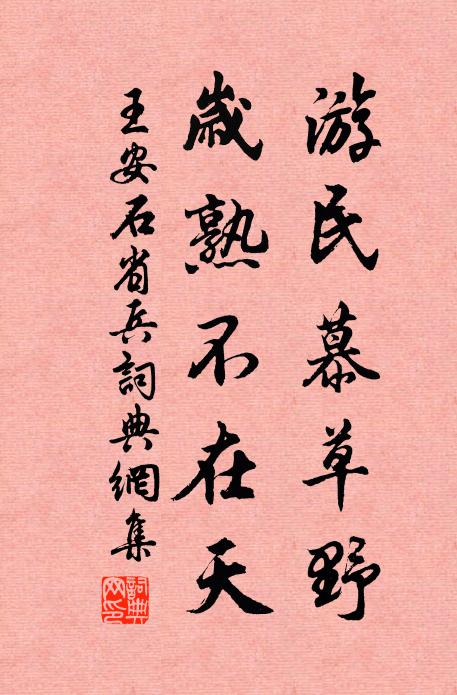 游民慕草野
歲熟不在天
王安石省兵詞典網集
詞典網印